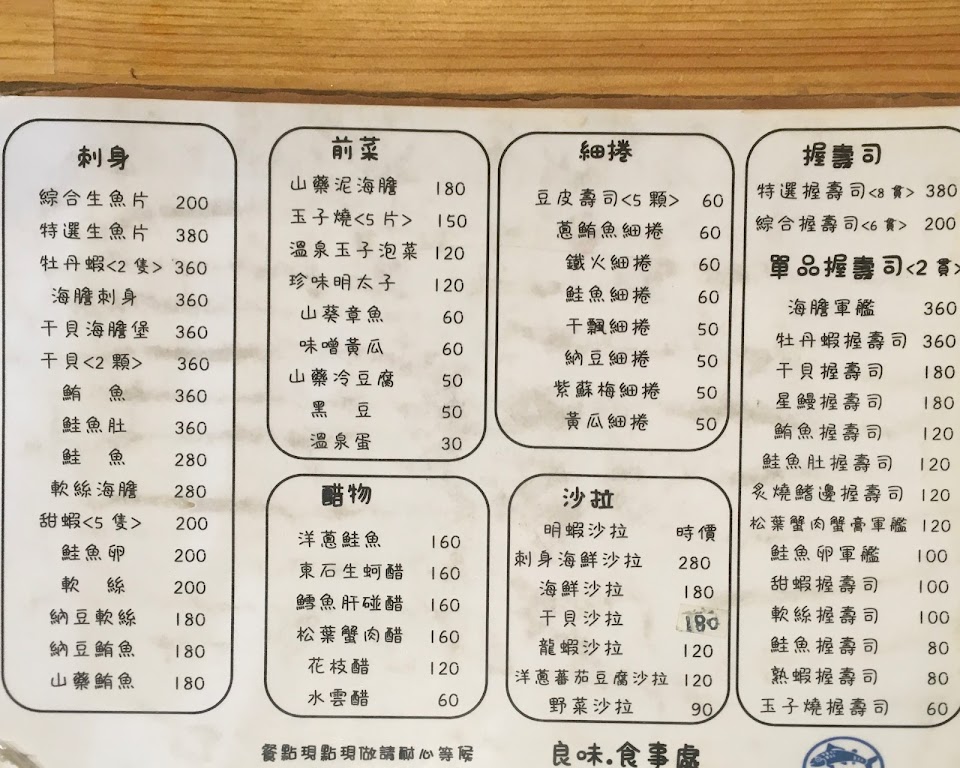 刺身
綜合生魚片 200
特選生魚片 380
牡丹蝦<2隻> 360
海膽刺身 360
干貝海膽堡 360
干貝<2顆> 360
鮪魚 360
鮭魚肚 360
鮭魚 280
軟絲海膽 280
甜蝦<5隻> 200
鮭魚卵 200
軟絲 200
納豆軟絲 180
納豆鮪魚 180
山藥鮪魚 180
前菜
山藥泥海膽 180
玉子燒<5片> 150
溫泉玉子泡菜 120
珍味明太子 120
山葵章魚 60
味噌黃瓜 60
山藥冷豆腐 50
黑豆 50
溫泉蛋 30
醋物
洋蔥鮭魚 160
東石生蚵醋 160
鱈魚肝碰醋 160
松葉蟹肉醋 160
花枝醋 120
水雲醋 60
細捲
豆皮壽司<5顆> 60
蔥鮪魚細捲 60
鐵火細捲 60
鮭魚細捲 60
干飄細捲 50
納豆細捲 50
紫蘇梅細捲 50
黃瓜細捲 50
沙拉
明蝦沙拉 時價
刺身海鮮沙拉 280
海鮮沙拉 180
干貝沙拉 180
龍蝦沙拉 120
洋蔥蕃茄豆腐沙拉 120
野菜沙拉 90
握壽司
特選握壽司<8貫> 380
綜合握壽司<6貫> 200
單品握壽司<2貫>
海膽軍艦 360
牡丹蝦握壽司 360
干貝握壽司 180
星鰻握壽司 180
鮪魚握壽司 120
鮭魚肚握壽司 120
炙燒鰭邊握壽司 120
松葉蟹肉蟹膏軍艦 120
鮭魚卵軍艦 100
甜蝦握壽司 100
軟絲握壽司 100
鮭魚握壽司 80
熟蝦握壽司 80
玉子燒握壽司 60
餐點現點現做請耐心等候
良味.食事處